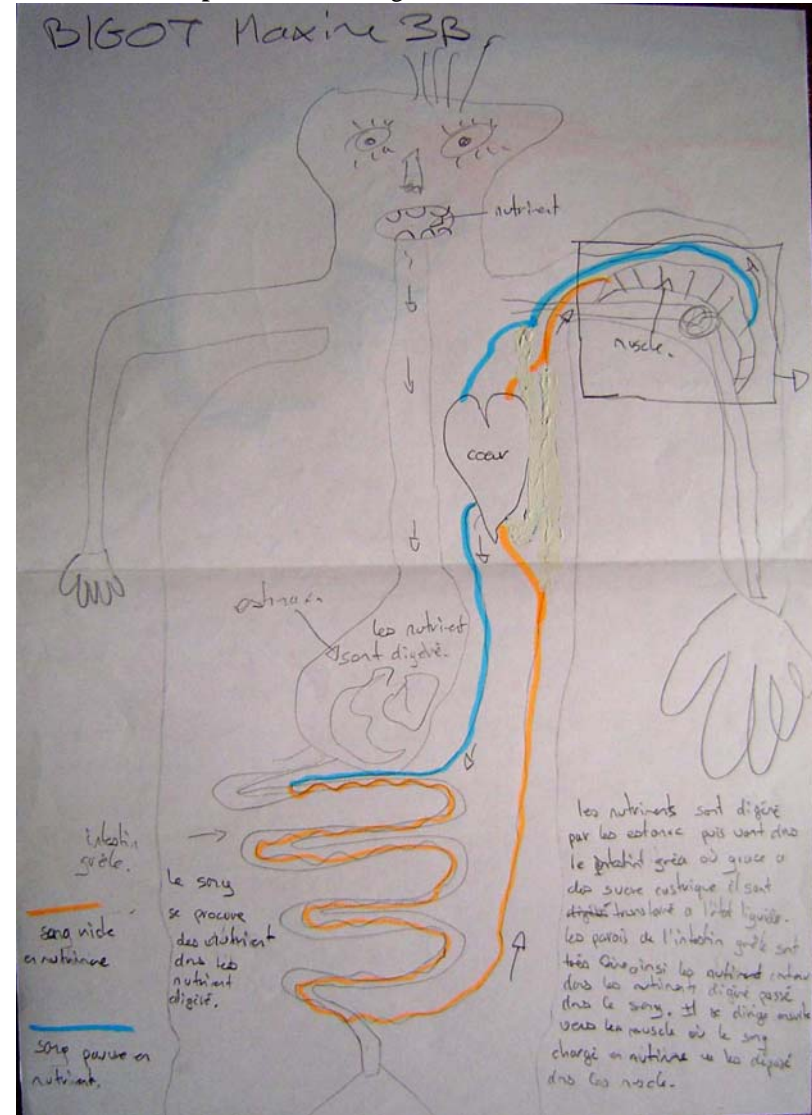 BIGOT Maxime 3B
nutriment
muscle.
coeur
estomac
les nutriment
sont digéré.
intestin
grêle.
le sang
se procure
des nutriment
dans les
nutriment
digéré.
sang riche
en nutrimme
sang pauvre en
nutriment.
les nutriments sont digéré
par les estomac puis vont dans
le intestin grêle où grace a
des sucre il sont
a l'état liquide.
les parois de l'intestin grêle sont
très fine ainsi les nutriment
dans les nutriment digéré passé
dans le sang. Il se dirige ensuite
vers les muscle où le sang
chargé en nutrimme va les déposé
dans les muscle.